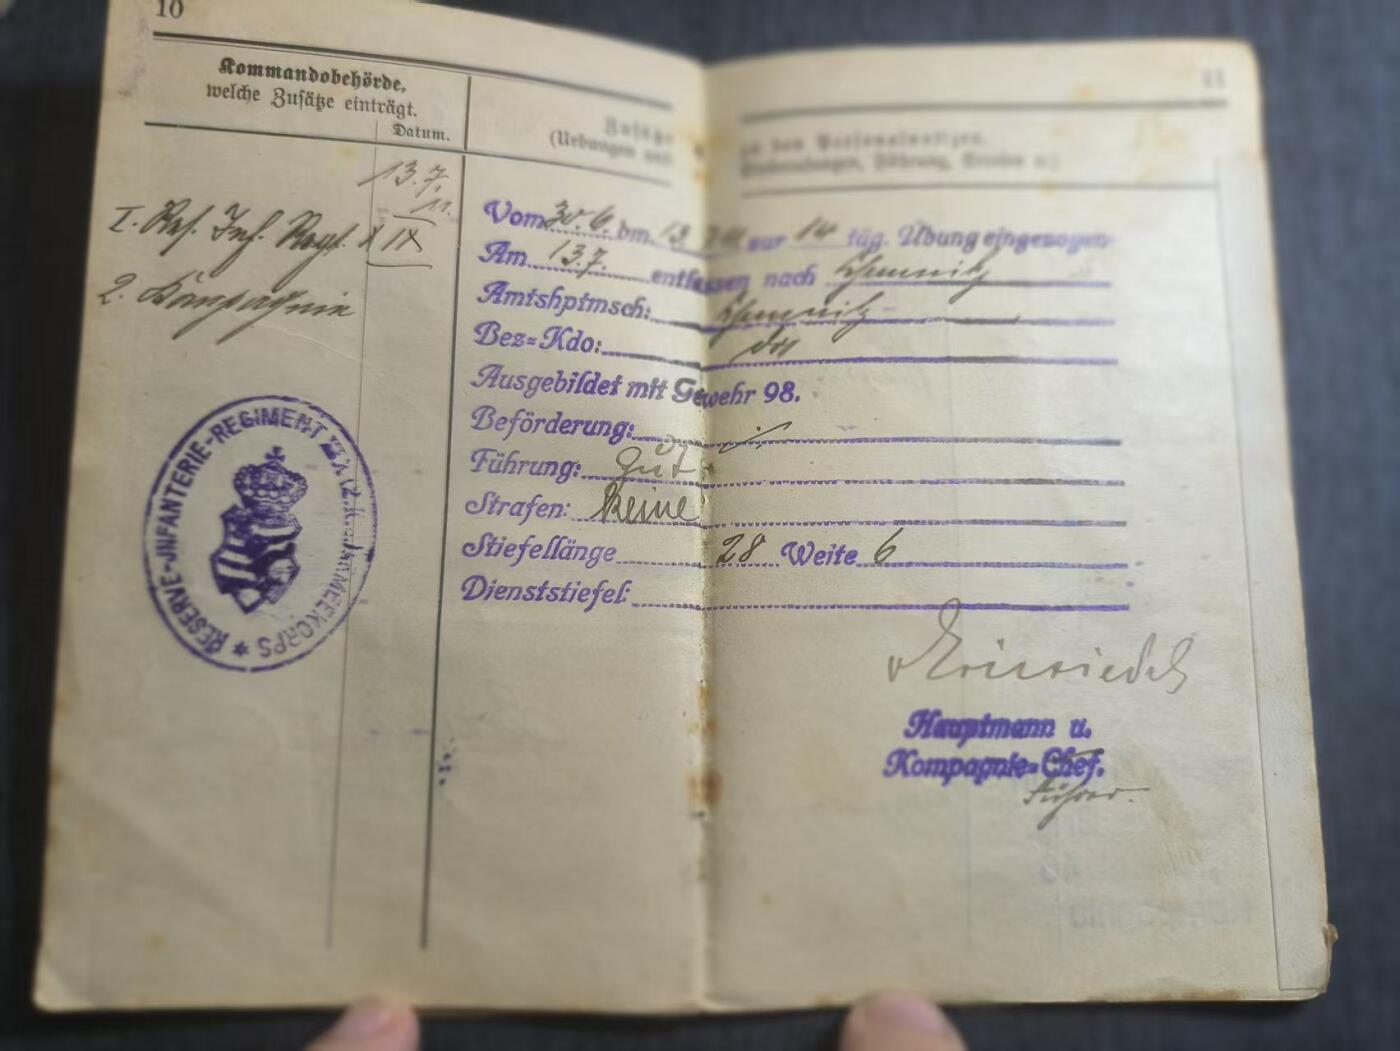 10
11
Kommandobehörde,
welche Zusätze einträgt.
Datum.
Zusätze
zu den Personalnotizen.
(Uebungen
Führung, Strafen
13.7.
11.
I. Res. Inf. Regt. XIX
2. Kompagnie
RESERVE-INFANTERIE-REGIMENT (2.K.S.) ARMEEKORPS
Vom 30.6. bm. 13. zur 14 täg. Übung eingezogen
Am 13.7. entlassen nach Chemnitz
Amtshptmsch: Chemnitz
Bez=Kdo: do
Ausgebildet mit Gewehr 98.
Beförderung: ./.
Führung: gut
Strafen: Keine
Stiefellänge 28 Weite 6
Dienststiefel:
Hauptmann u.
Kompagnie=Chef.
Führer.